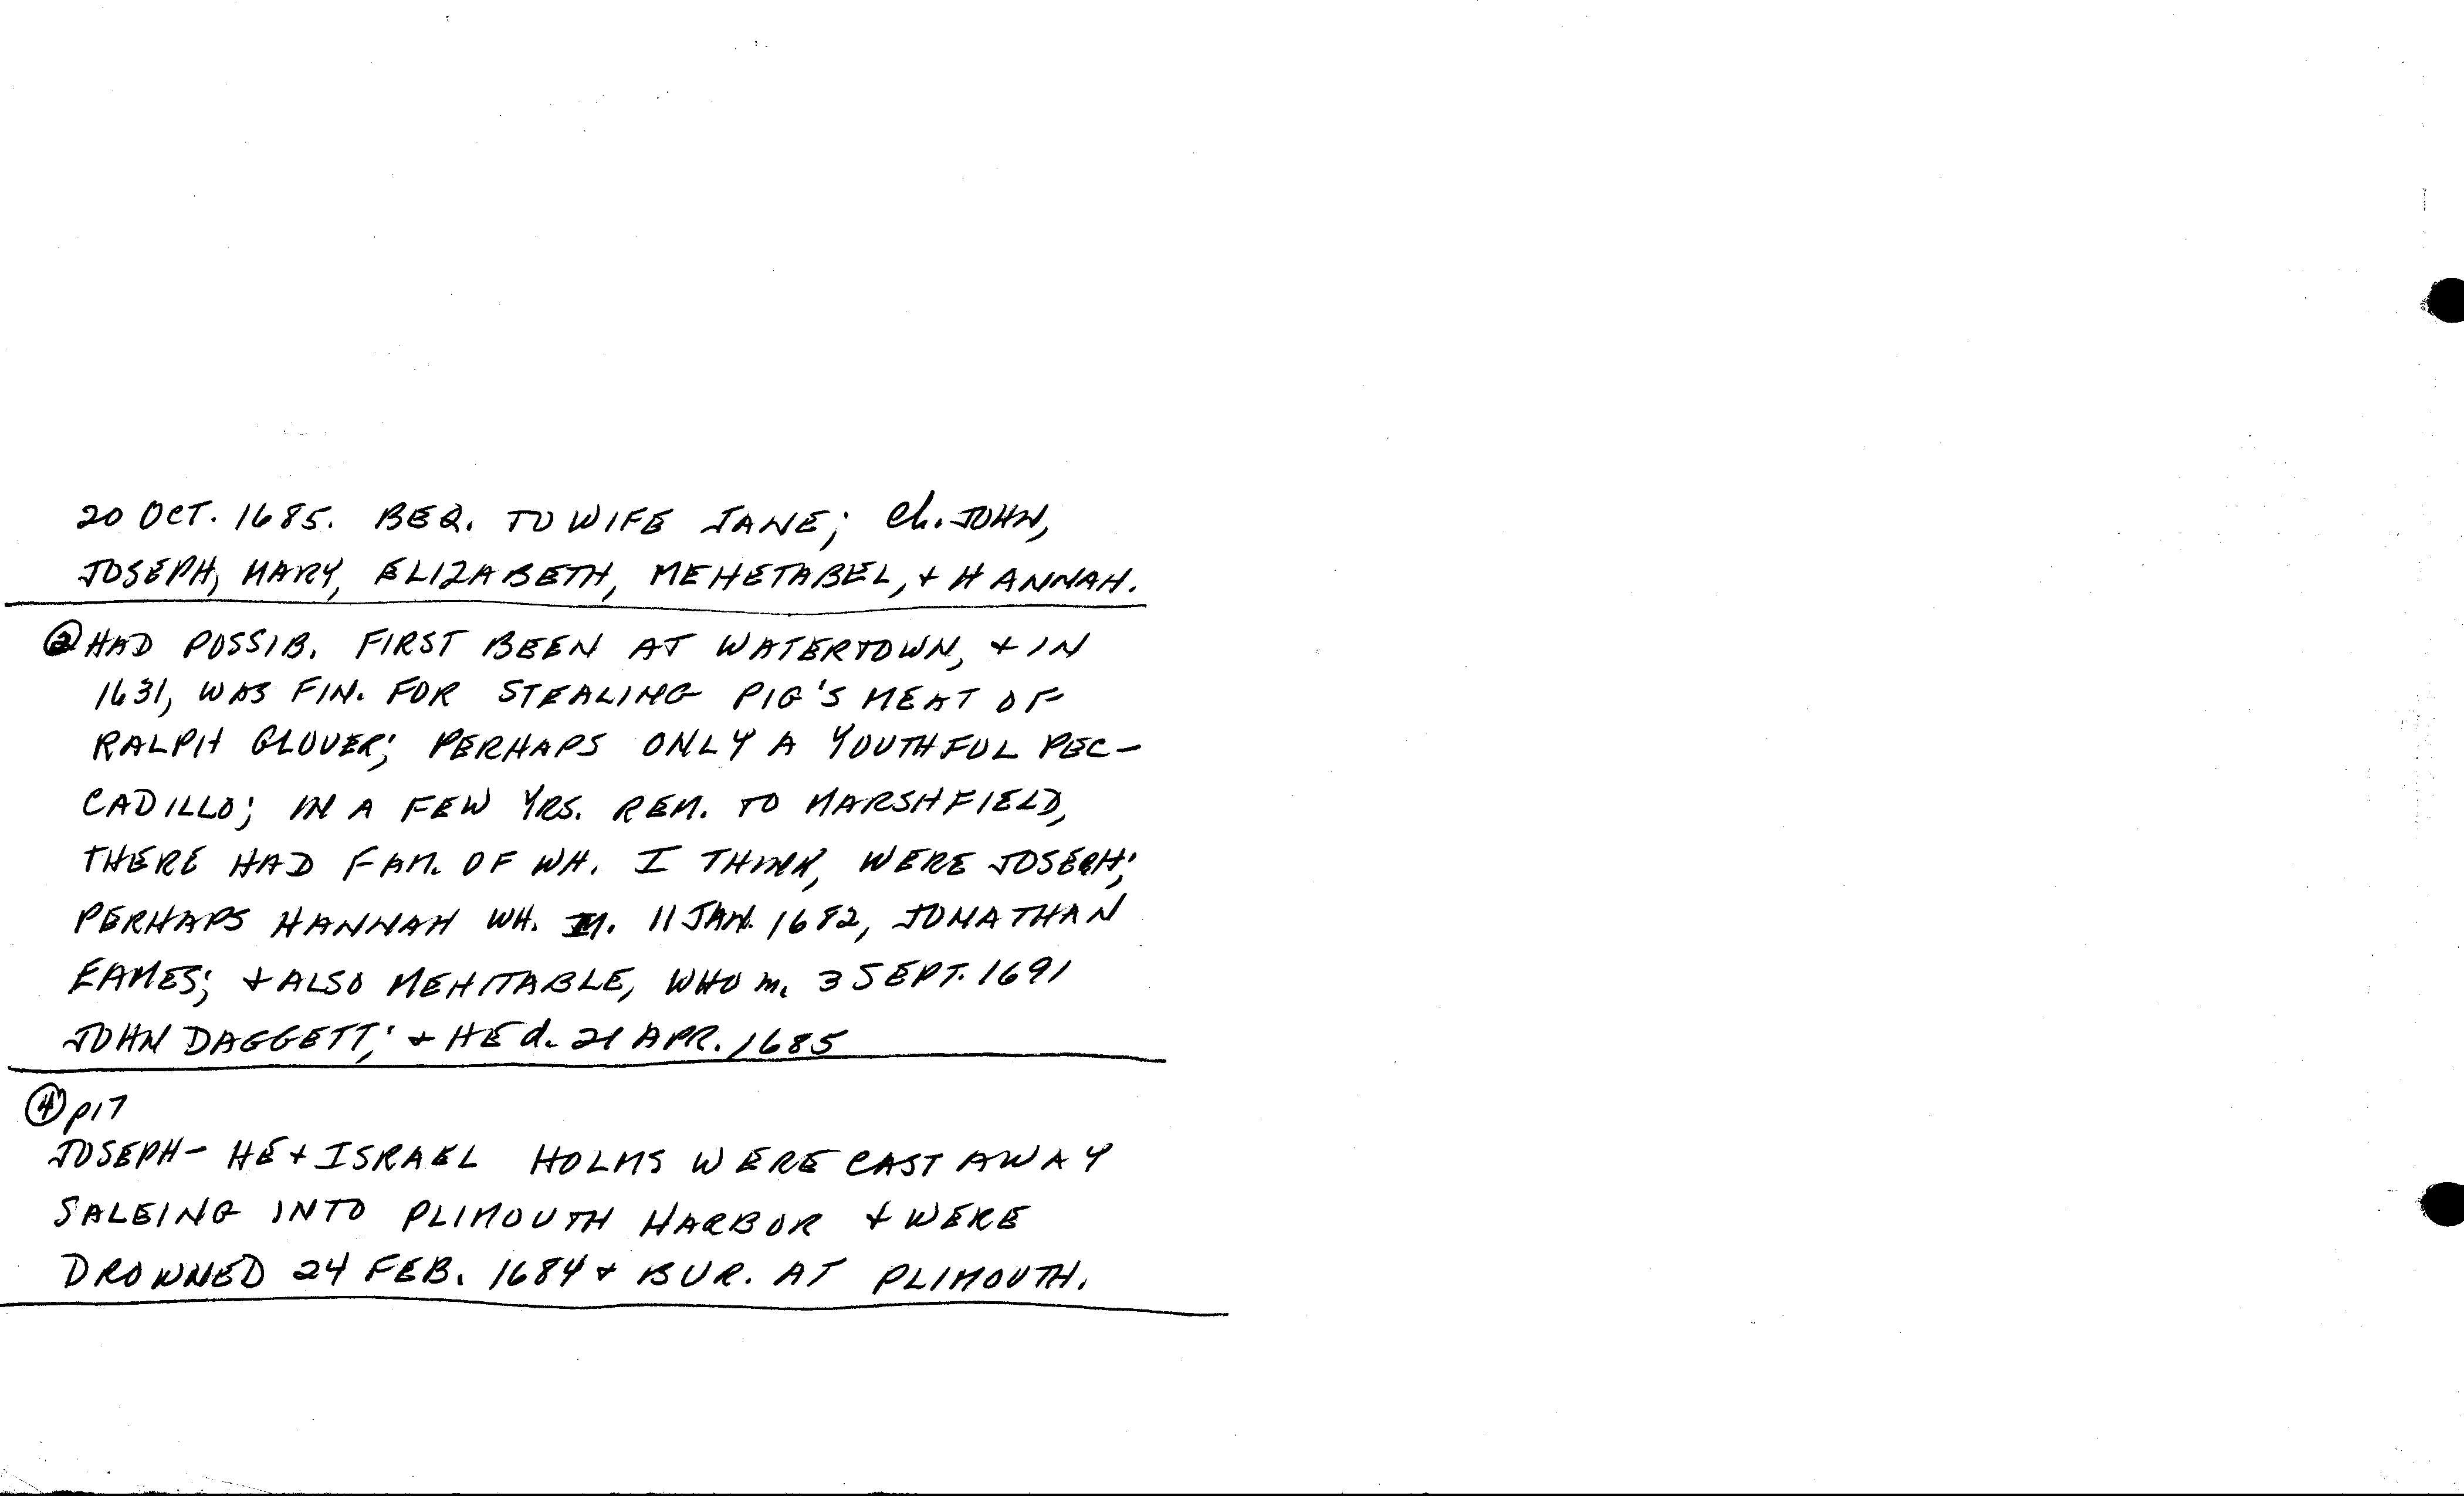 20 OCT. 1685. BEQ. TO WIFE JANE; Ch. JOHN,
JOSEPH, MARY, ELIZABETH, MEHETABEL, + HANNAH.
② HAD POSSIB. FIRST BEEN AT WATERTOWN, + IN
1631, WAS FIN. FOR STEALING PIG'S MEAT OF
RALPH GLOVER; PERHAPS ONLY A YOUTHFUL PEC-
CADILLO; IN A FEW YRS. REM. TO MARSHFIELD,
THERE HAD FAM. OF WH. I THINK, WERE JOSEPH;
PERHAPS HANNAH WH. M. 11 JAN. 1682, JONATHAN
EAMES; + ALSO MEHITABLE, WHO m. 3 SEPT. 1691
JOHN DAGGETT; + HE d. 21 APR. 1685
④ p17
JOSEPH - HE + ISRAEL HOLMS WERE CAST AWAY
SALEING INTO PLIMOUTH HARBOR + WERE
DROWNED 24 FEB. 1684 + BUR. AT PLIMOUTH.